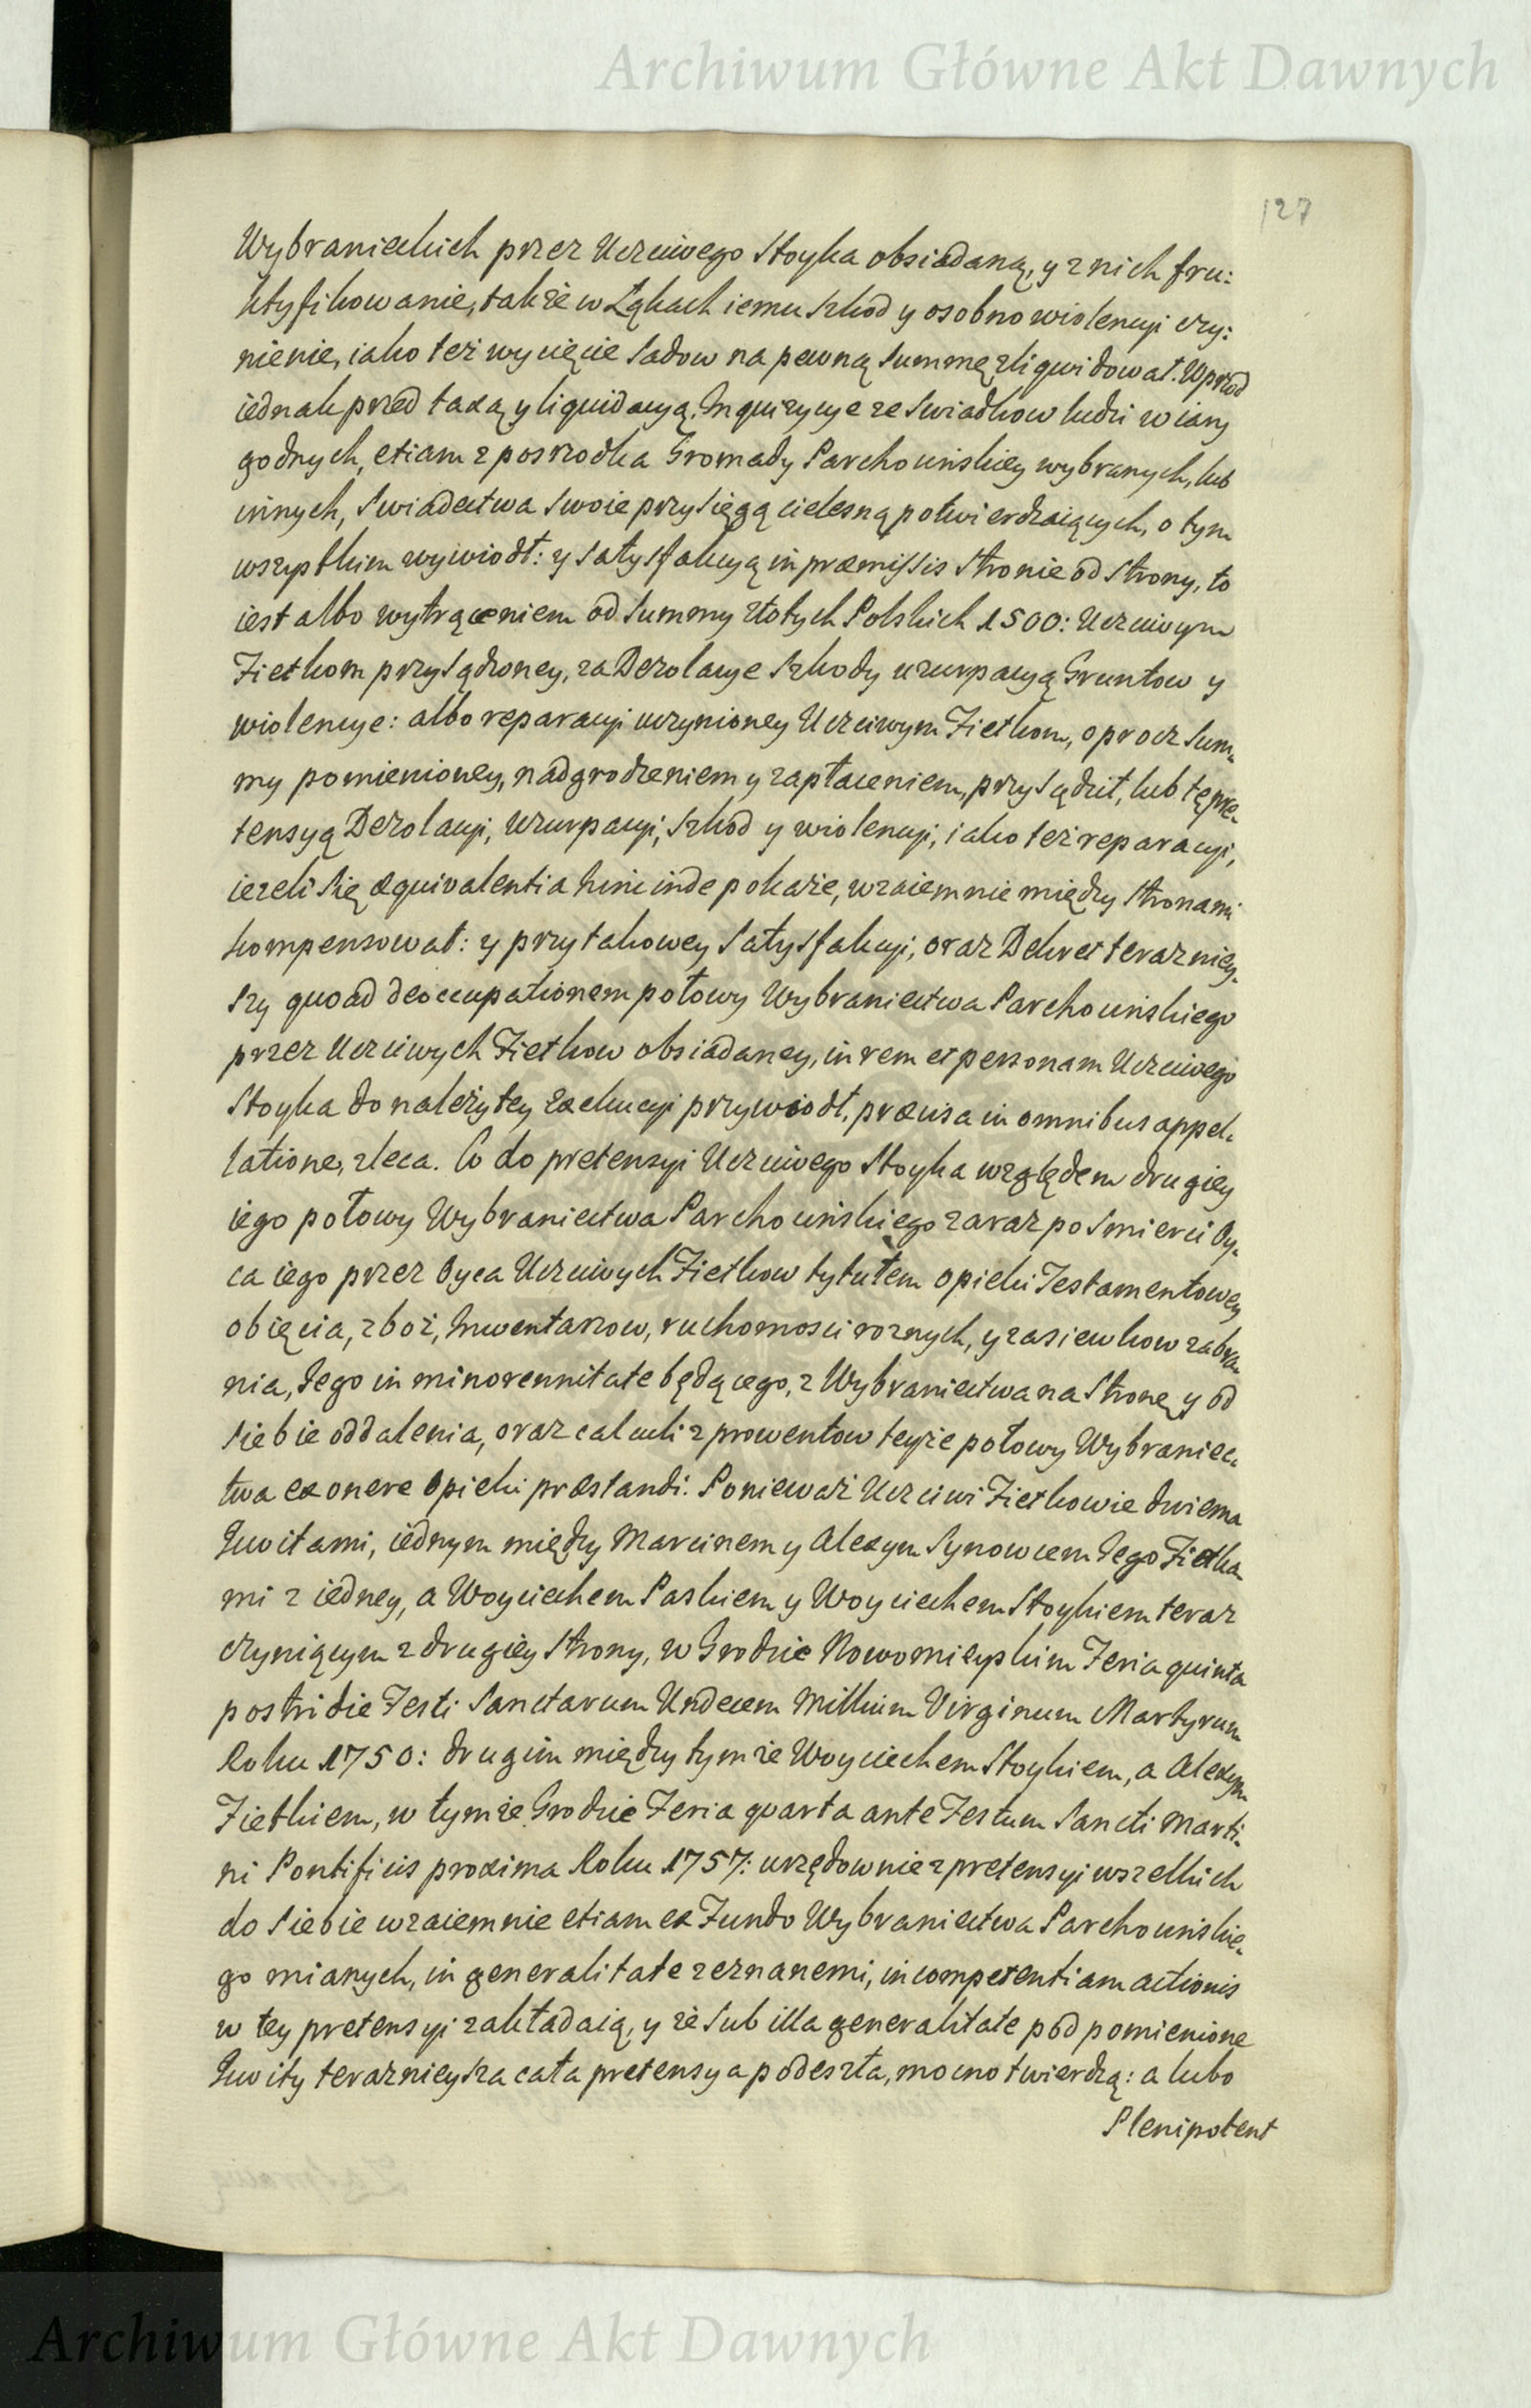 Archiwum Główne Akt Dawnych
127
Wybranieckich przez Uczciwego Stoyka obsiadaną, y z nich fru:
ktyfikowanie, także w Łąkach iemu szkod y osobno wiolencyi czy:
nienie, iako też wycięcie Sadow na pewną Summę zliquidował. Wprzod
iednak przed taxą y liquidacyą. Inquizycye ze Swiadkow ludzi wiary
godnych, etiam z posrzodka Gromady Parchocińskiey wybranych, lub
innych, Swiadectwa Swoie przysięgą cielesną potwierdzaiących, o tym
wszystkim wywiodł: y Satysfakcyą in præmissis Stronie od Strony, to
iest albo wytrąceniem od Summy złotych Polskich 1500: Uczciwym
Zietkom przysądzoney, za Dezolacye Szkody uzurpacyą Gruntow y
wiolencye: albo reparacyi uczynioney Uczciwym Zietkom, oprocz Sum„
my pomienioney, nadgrodzeniem y zapłaceniem, przysądził, lub tę pre„
tensyą Dezolacyi, Uzurpacyi, szkod y wiolencyi, iako też reparacyi,
ieżeli się æquivalentia hinc inde pokaże, wzaiemnie między Stronami
kompensował: y przy takowey Satysfakcyi, oraz Dekret teraźniey„
szy quoad deoccupationem połowy Wybraniectwa Parchocińskiego
przez Uczciwych Zietkow obsiadaney, in rem et personam Uczciwego
Stoyka do należytey Exekucyi przywiodł, præcisa in omnibus appel„
latione, zleca. Co do pretensyi Uczciwego Stoyka względem drugiey
iego połowy Wybraniectwa Parchocińskiego zaraz po Smierci Oy„
ca iego przez Oyca Uczciwych Zietkow tytułem opieki Testamentowey
obięcia, zboż, Inwentarzow, ruchomosci roznych, y zasiewkow zabra„
nia, Jego in minorennitate będącego, z Wybraniectwa na Stronę y od
Siebie oddalenia, oraz calculi z prowentow teyże połowy Wybraniec„
twa ex onere Opieki præstandi. Ponieważ Uczciwi Zietkowie dwiema
Kwitami, iednym między Marcinem y Alexym Synowcem Jego Zietka„
mi z iedney, a Woyciechem Paskiem y Woyciechem Stoykiem teraz
czyniącym z drugiey Strony, w Grodzie Nowomieyskim Feria quinta
postridie Festi Sanctarum Undecem Millium Virginum Martyrum
Roku 1750: drugim między tymże Woyciechem Stoykiem, a Alexym
Zietkiem, w tymże Grodzie Feria quarta ante Festum Sancti Marti„
ni Pontificis proxima Roku 1757: urzędownie z pretensyi wszelkich
do Siebie wzaiemnie etiam ex Fundo Wybraniectwa Parchocińskie„
go mianych, in generalitate zeznanemi, incompetentiam actionis
w tey pretensyi zakładaią, y że Sub illa generalitate pod pomienione
Kwity teraźnieysza cała pretensya podeszła, mocno twierdzą: a lubo
Plenipotent
Archiwum Główne Akt Dawnych